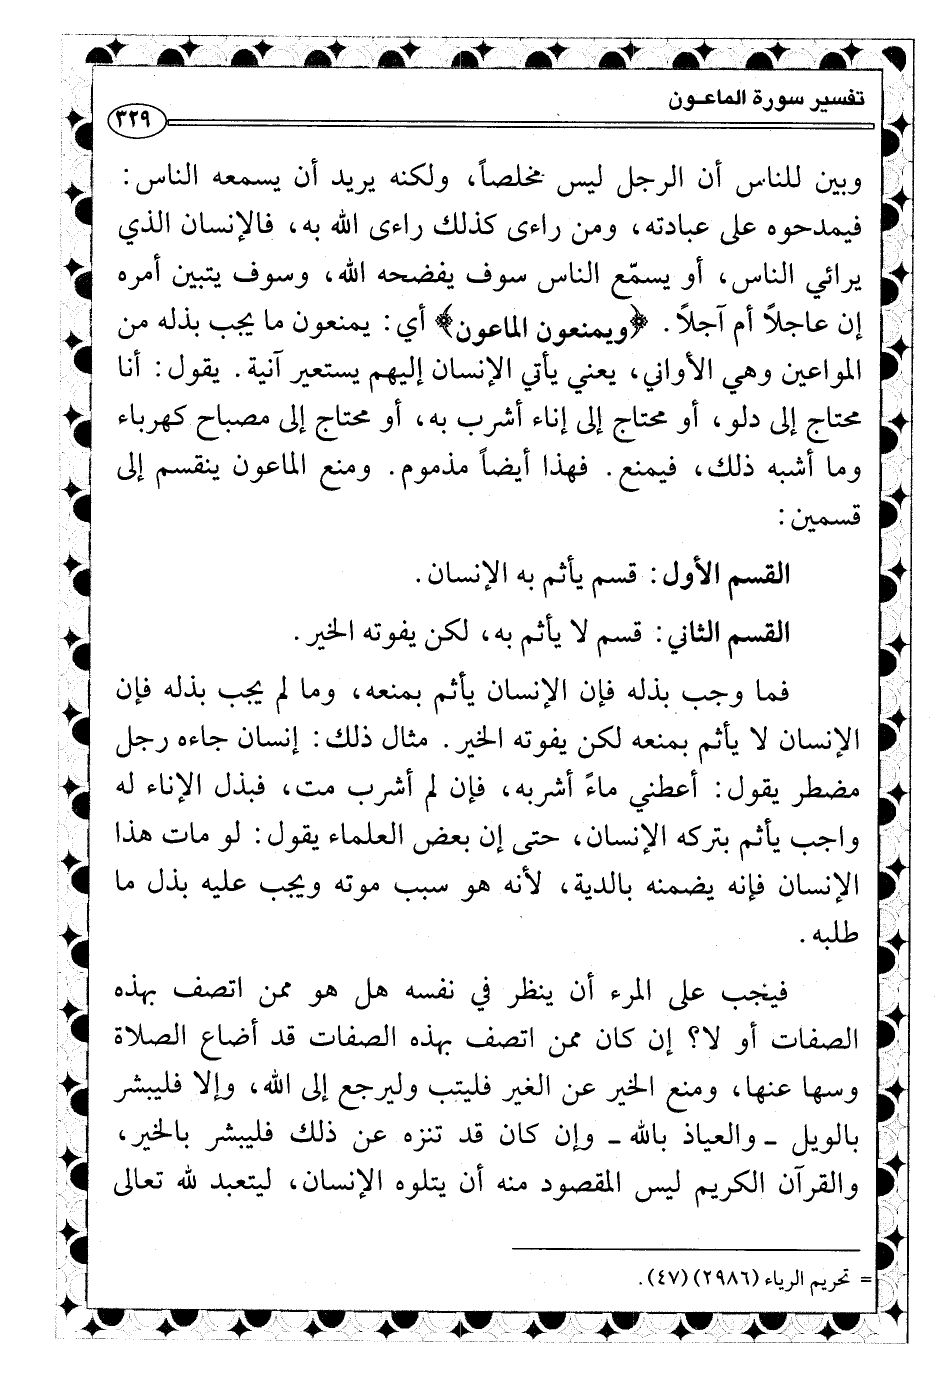 تفسير سورة الماعـون
٣٢٩
وبين للناس أن الرجل ليس مخلصاً، ولكنه يريد أن يسمعه الناس:
فيمدحوه على عبادته، ومن راءى كذلك راءى الله به، فالإنسان الذي
يرائي الناس، أو يسمّع الناس سوف يفضحه الله، وسوف يتبين أمره
إن عاجلاً أم آجلاً. ﴿ويمنعون الماعون﴾ أي: يمنعون ما يجب بذله من
المواعين وهي الأواني، يعني يأتي الإنسان إليهم يستعير آنية. يقول: أنا
محتاج إلى دلو، أو محتاج إلى إناء أشرب به، أو محتاج إلى مصباح كهرباء
وما أشبه ذلك، فيمنع. فهذا أيضاً مذموم. ومنع الماعون ينقسم إلى
قسمين:
القسم الأول: قسم يأثم به الإنسان.
القسم الثاني: قسم لا يأثم به، لكن يفوته الخير.
فما وجب بذله فإن الإنسان يأثم بمنعه، وما لم يجب بذله فإن
الإنسان لا يأثم بمنعه لكن يفوته الخير. مثال ذلك: إنسان جاءه رجل
مضطر يقول: أعطني ماءً أشربه، فإن لم أشرب مت، فبذل الإناء له
واجب يأثم بتركه الإنسان، حتى إن بعض العلماء يقول: لو مات هذا
الإنسان فإنه يضمنه بالدية، لأنه هو سبب موته ويجب عليه بذل ما
طلبه.
فيجب على المرء أن ينظر في نفسه هل هو ممن اتصف بهذه
الصفات أو لا؟ إن كان ممن اتصف بهذه الصفات قد أضاع الصلاة
وسها عنها، ومنع الخير عن الغير فليتب وليرجع إلى الله، وإلا فليبشر
بالويل ـ والعياذ بالله ـ وإن كان قد تنزه عن ذلك فليبشر بالخير،
والقرآن الكريم ليس المقصود منه أن يتلوه الإنسان، ليتعبد لله تعالى
= تحريم الرياء (٢٩٨٦) (٤٧).